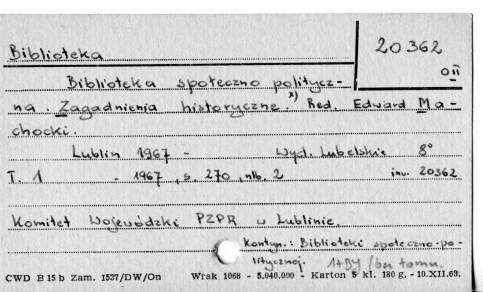 Biblioteka 20362
0 II
Biblioteka społeczno politycz-
na. Zagadnienia historyczne. x) Red. Edward Ma-
chocki.
Lublin 1967 - Wyd. Lubelskie 8°
T. 1 - 1967, s. 270, nlb. 2 inw. 20362
Komitet Wojewódzki PZPR w Lublinie
Kontyn.: Biblioteki społeczno-po-
litycznej. 1+DY /bez tomu.
CWD B 15 b Zam. 1537/DW/On Wrak 1068 - 5.040.000 - Karton 5 kl. 180 g, - 10.XII.68.